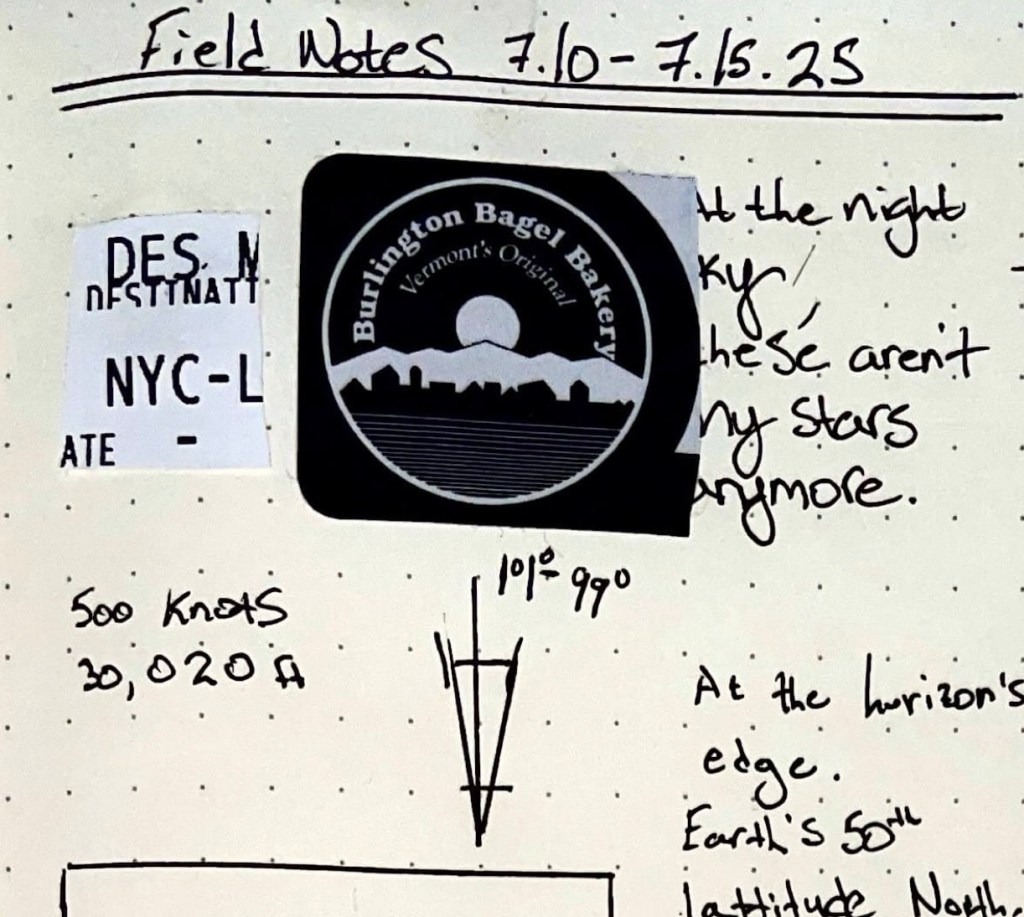 Field Notes 7.10 - 7.15.25
DES. M
DESTINATI
NYC-L
ATE -
Burlington Bagel Bakery
Vermont's Original
At the night
ky,
hese aren't
my stars
anymore.
500 Knots
30,020 ft
101° - 99°
At the horizon's
edge.
Earth's 50th
lattitude North.